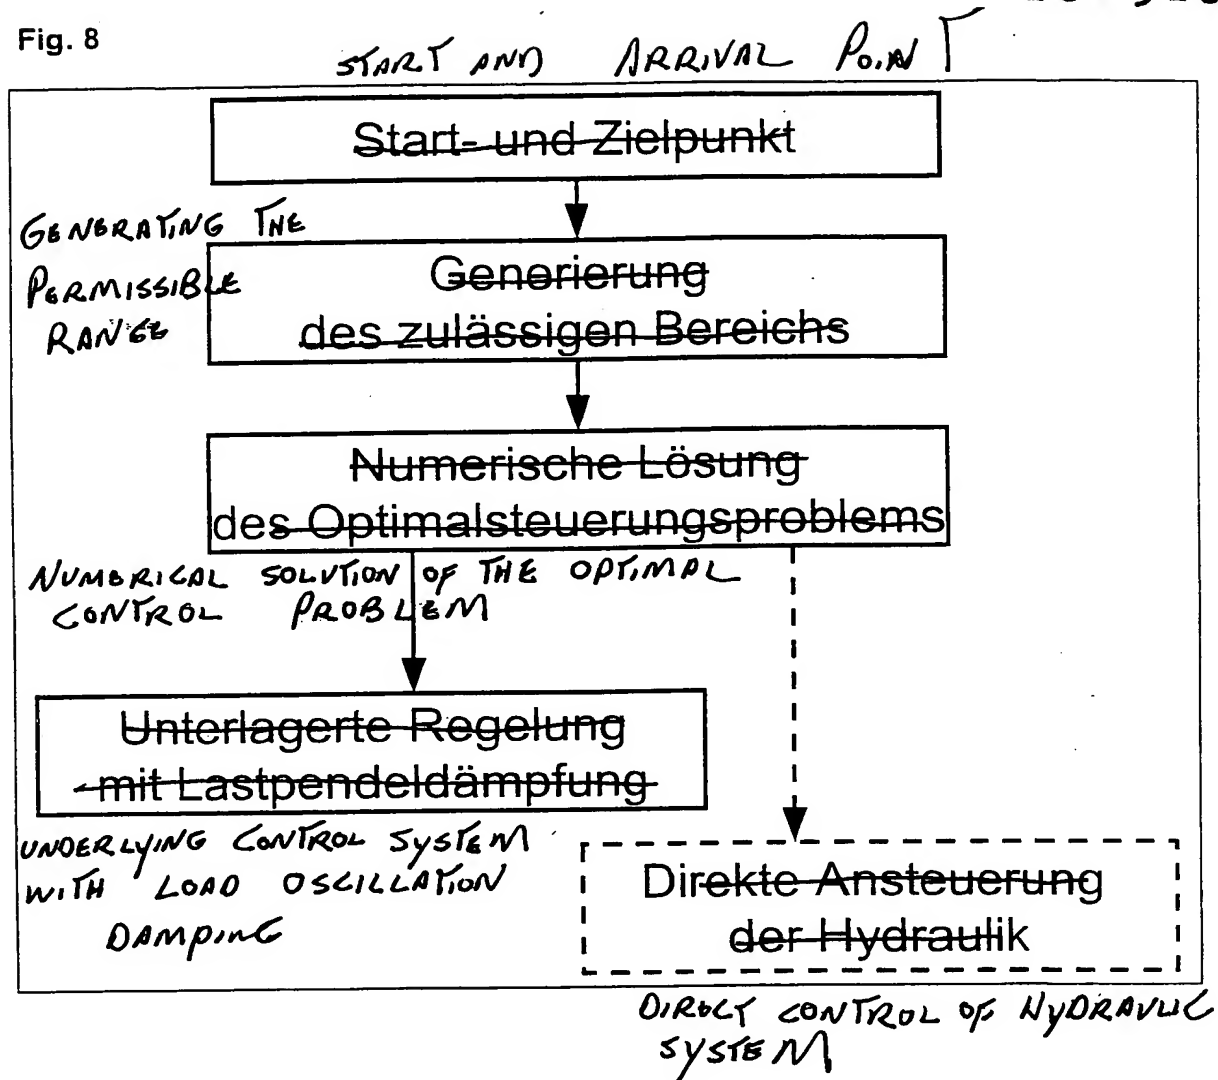 Fig. 8
START AND ARRIVAL POINT
Start- und Zielpunkt
GENERATING THE
PERMISSIBLE
RANGE
Generierung
des zulässigen Bereichs
Numerische Lösung
des Optimalsteuerungsproblems
NUMERICAL SOLUTION OF THE OPTIMAL
CONTROL PROBLEM
Unterlagerte Regelung
mit Lastpendeldämpfung
UNDERLYING CONTROL SYSTEM
WITH LOAD OSCILLATION
DAMPING
Direkte Ansteuerung
der Hydraulik
DIRECT CONTROL OF HYDRAULIC
SYSTEM